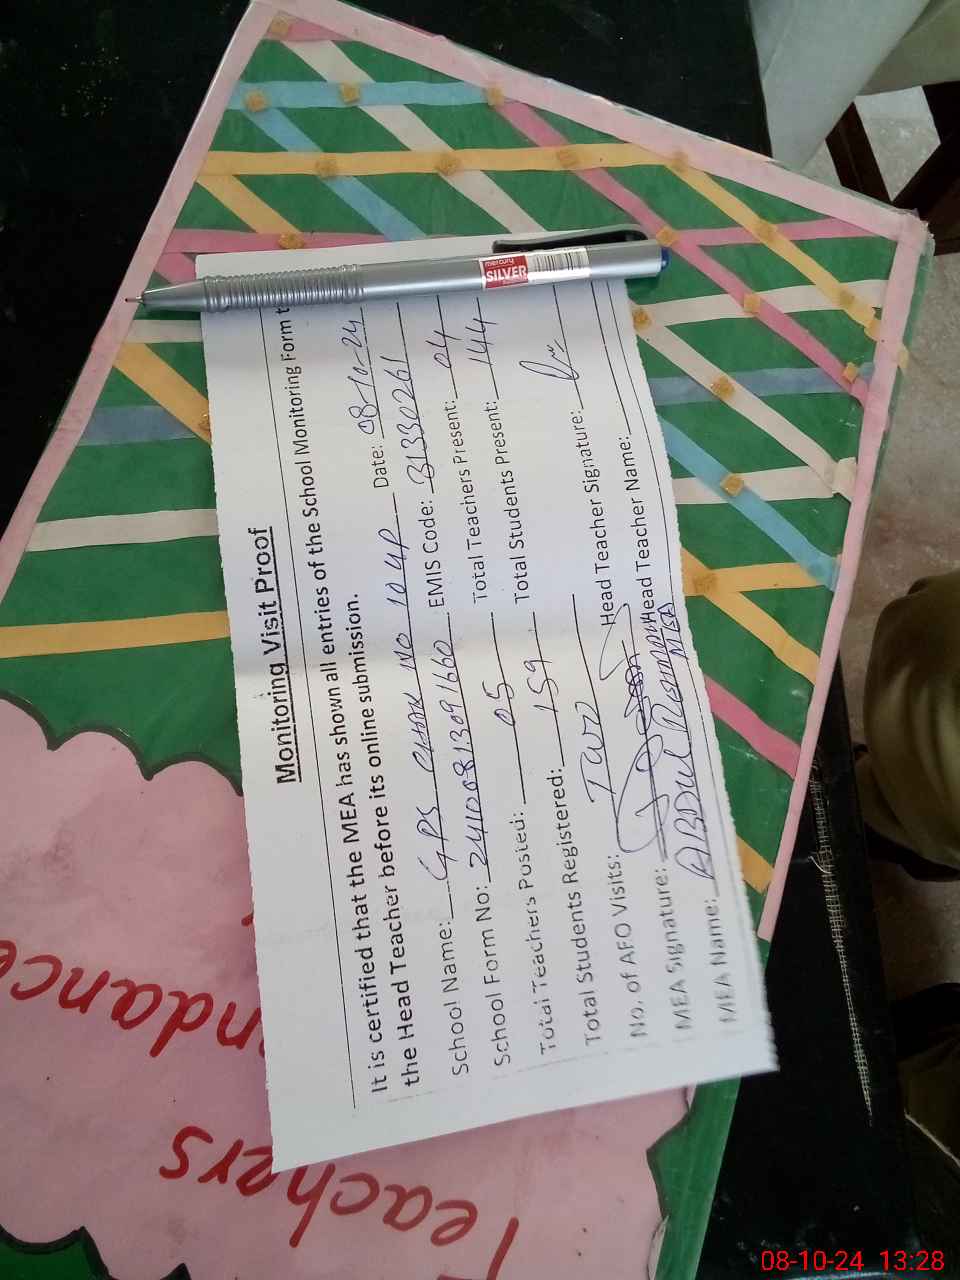 Monitoring Visit Proof
It is certified that the MEA has shown all entries of the School Monitoring Form t
the Head Teacher before its online submission.
Date: 08-10-24
School Name: GPS CHAK NO 10 UP
EMIS Code: 31330261
School Form No: 24100813091660
Total Teachers Present: 04
Total Teachers Posted: 05
Total Students Present: 144
Total Students Registered: 159
No. of AFO Visits: Two
Head Teacher Signature:
MEA Signature:
Head Teacher Name:
MEA Name: ABDUL REHMAN
MEA
mercury
SILVER
Teachers
08-10-24 13:28